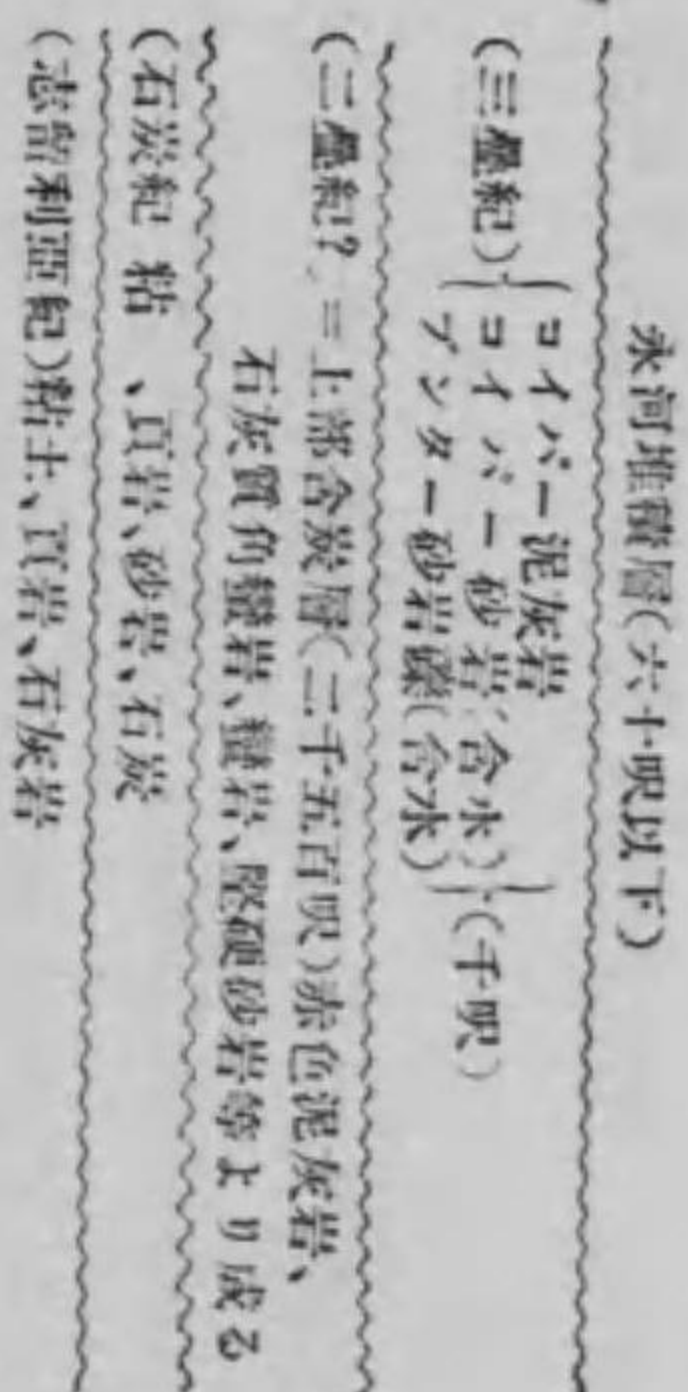 氷河堆積層(六十呎以下)
(三疊紀){コイパー泥灰岩
コイパー砂岩(含水)
ブンター砂岩礫(含水)}(千呎)
(二疊紀?=上部含炭層(二千五百呎)赤色泥灰岩、
石灰質角蠻岩、蠻岩、堅硬砂岩等より成る
(石炭紀 粘 、頁岩、砂岩、石炭
(志留利亞紀)粘土、頁岩、石灰岩